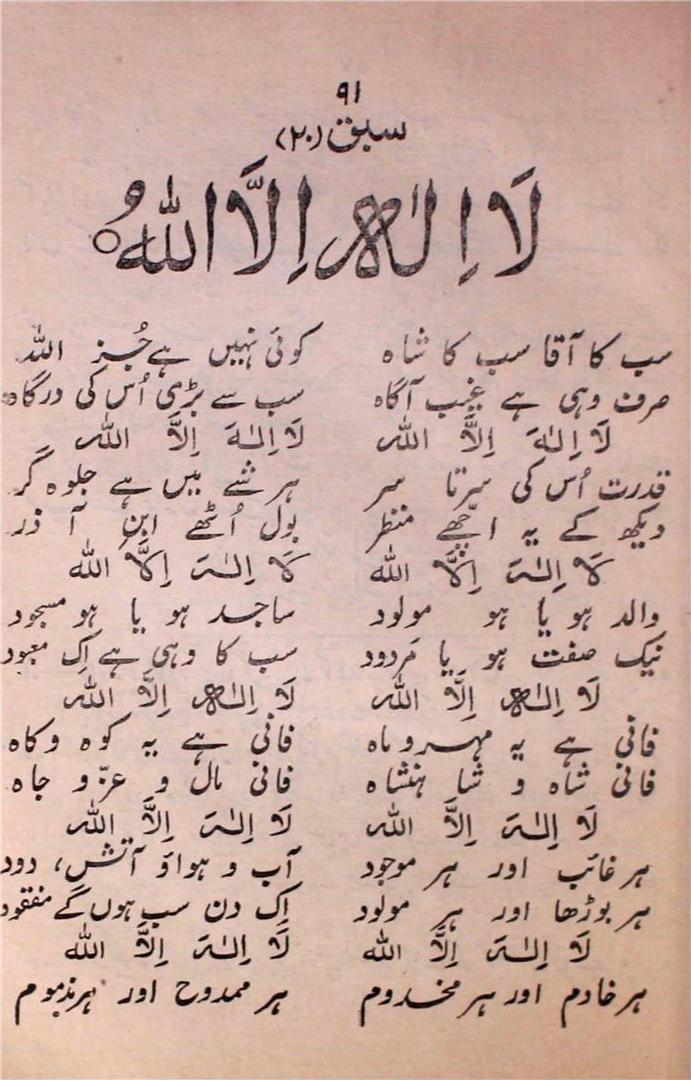 ۹۱
سبق (۲۰)
لَا اِلٰہَ اِلَّا اللّٰہُ
سب کا آقا سب کا شاہ کوئی نہیں ہے جُز اللہ
صرف وہی ہے غیب آگاہ سب سے بڑی اُس کی درگاہ
لَا اِلٰہَ اِلَّا اللہ لَا اِلٰہَ اِلَّا اللہ
قدرت اُس کی سرتا سر ہر شے میں ہے جلوہ گر
دیکھ کے یہ اچھے منظر بول اُٹھے ابنِ آذر
لَا اِلٰہَ اِلَّا اللہ لَا اِلٰہَ اِلَّا اللہ
والد ہو یا ہو مولود ساجد ہو یا ہو مسجود
نیک صفت ہو یا مَردود سب کا وہی ہے اِک معبود
لَا اِلٰہَ اِلَّا اللہ لَا اِلٰہَ اِلَّا اللہ
فانی ہے یہ مہر و ماہ فانی ہے یہ کوہ و کاہ
فانی شاہ و شاہنشاہ فانی مال و عزّ و جاہ
لَا اِلٰہَ اِلَّا اللہ لَا اِلٰہَ اِلَّا اللہ
ہر غائب اور ہر موجود آب و ہوا وَ آتش، دود
ہر بوڑھا اور ہر مولود اِک دن سب ہوں گے مفقود
لَا اِلٰہَ اِلَّا اللہ لَا اِلٰہَ اِلَّا اللہ
ہر خادم اور ہر مخدوم ہر ممدوح اور ہر مذموم